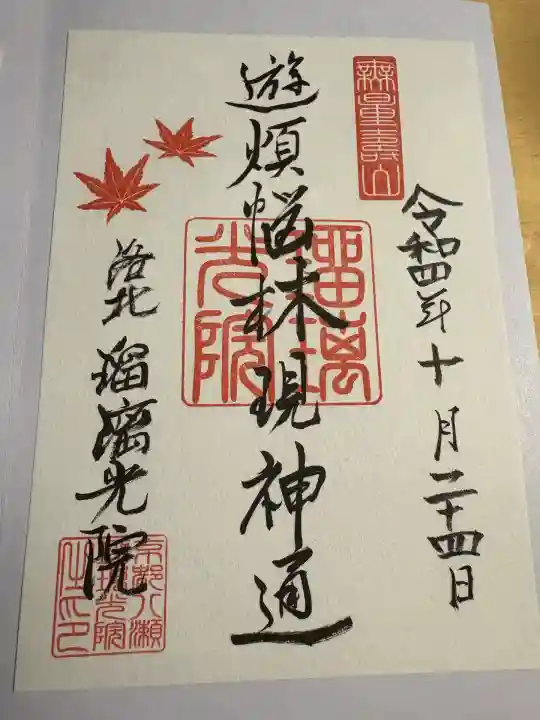 無量壽山
令和四年十月二十四日
遊煩悩林現神通
瑠璃光院
洛北 瑠璃光院
京都八瀬
瑠璃光院
之印